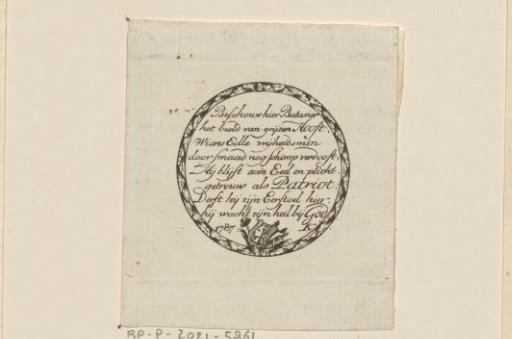 Beschouw hier Bataven
het beeld van grijzen Hooft.
Wiens Edle vrijheidsmin
door smaad nog schimp verdooft.
Hij blijft aan Eed en plicht
getrouw als Patriot
Derft hij zijn Eerstoel hier:
hij wacht zijn heil bij God
1787. K
RP-P-2021-5861